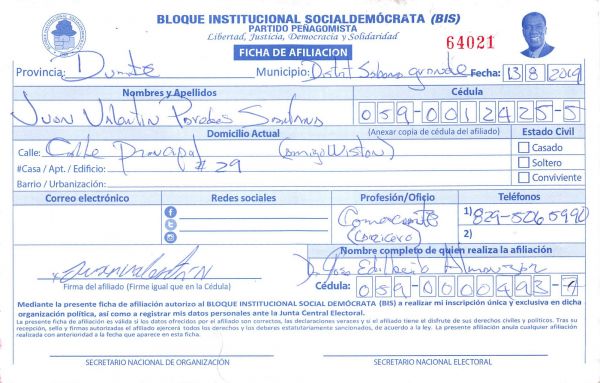 BLOQUE INSTITUCIONAL SOCIALDEMÓCRATA (BIS)
PARTIDO PEÑAGOMISTA
Libertad, Justicia, Democracia y Solidaridad
FICHA DE AFILIACION
64021
Provincia: Duarte Municipio: Distrit Sabana grande Fecha: 13 8 2019
Nombres y Apellidos Cédula
Juan Valentin 059-0012425-5
Domicilio Actual (Anexar copia de cédula del afiliado) Estado Civil
Calle: Calle Principal (amigo Wiston) Casado
#Casa / Apt. / Edificio: # 29 Soltero
Barrio / Urbanización: Conviviente
Correo electrónico Redes sociales Profesión/Oficio Teléfonos
Comerciante 1) 829-506 5990
2)
Nombre completo de quien realiza la afiliación
Juan Valentin Dr Jose
Firma del afiliado (Firme igual que en la Cédula) Cédula: 059-0000493-7
Mediante la presente ficha de afiliación autorizo al BLOQUE INSTITUCIONAL SOCIAL DEMÓCRATA (BIS) a realizar mi inscripción única y exclusiva en dicha
organización política, así como a registrar mis datos personales ante la Junta Central Electoral.
La presente ficha de afiliación es valida si los datos ofrecidos por el afiliado son correctos, las declaraciones veraces y si el afiliado tiene el disfrute de sus derechos civiles y políticos. Tras su
recepción, sello y firmas autorizadas el afiliado ejercerá todos los derechos y los deberes estatutariamente sancionados, de acuerdo a la ley. La presente afiliación anula cualquier afiliación
realizada con anterioridad a la fecha que aparece en esta ficha.
SECRETARIO NACIONAL DE ORGANIZACIÓN SECRETARIO NACIONAL ELECTORAL